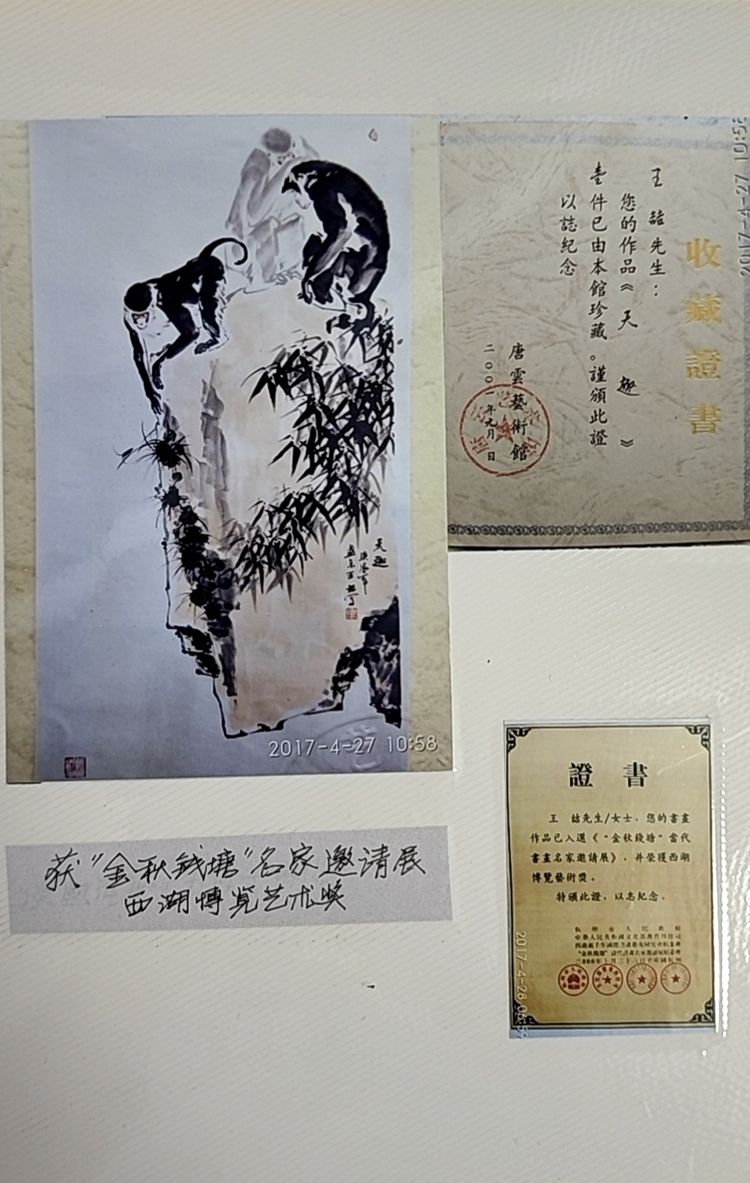 天趣
2017-4-27 10:58
收藏證書
王喆先生：
您的作品《天趣》
壹件已由本館珍藏。謹頒此證
以誌紀念
唐雲藝術館
二〇〇一年九月 日
2017-4-27 10:58
获“金秋钱塘”名家邀请展
西湖博览艺术奖
證書
王喆先生/女士，您的書畫
作品已入選《“金秋錢塘”當代
書畫名家邀請展》，并榮獲西湖
博覽藝術獎。
特頒此證，以志紀念。
杭州市人民政府
2017-4-28